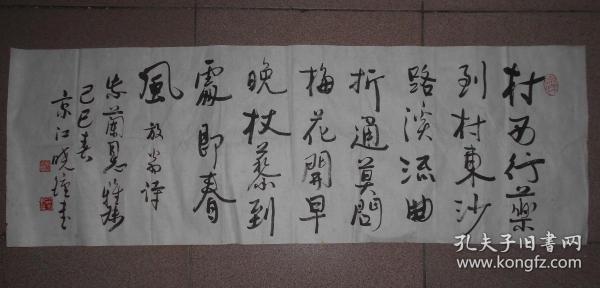 村西行藥
到村東沙
路溪流曲
折通莫問
梅花開早
晚杖藜到
處即春
風 放翁詩
芷蘭恩雅
己巳春
京江曉鐘書
孔夫子旧书网
www.kongfz.com